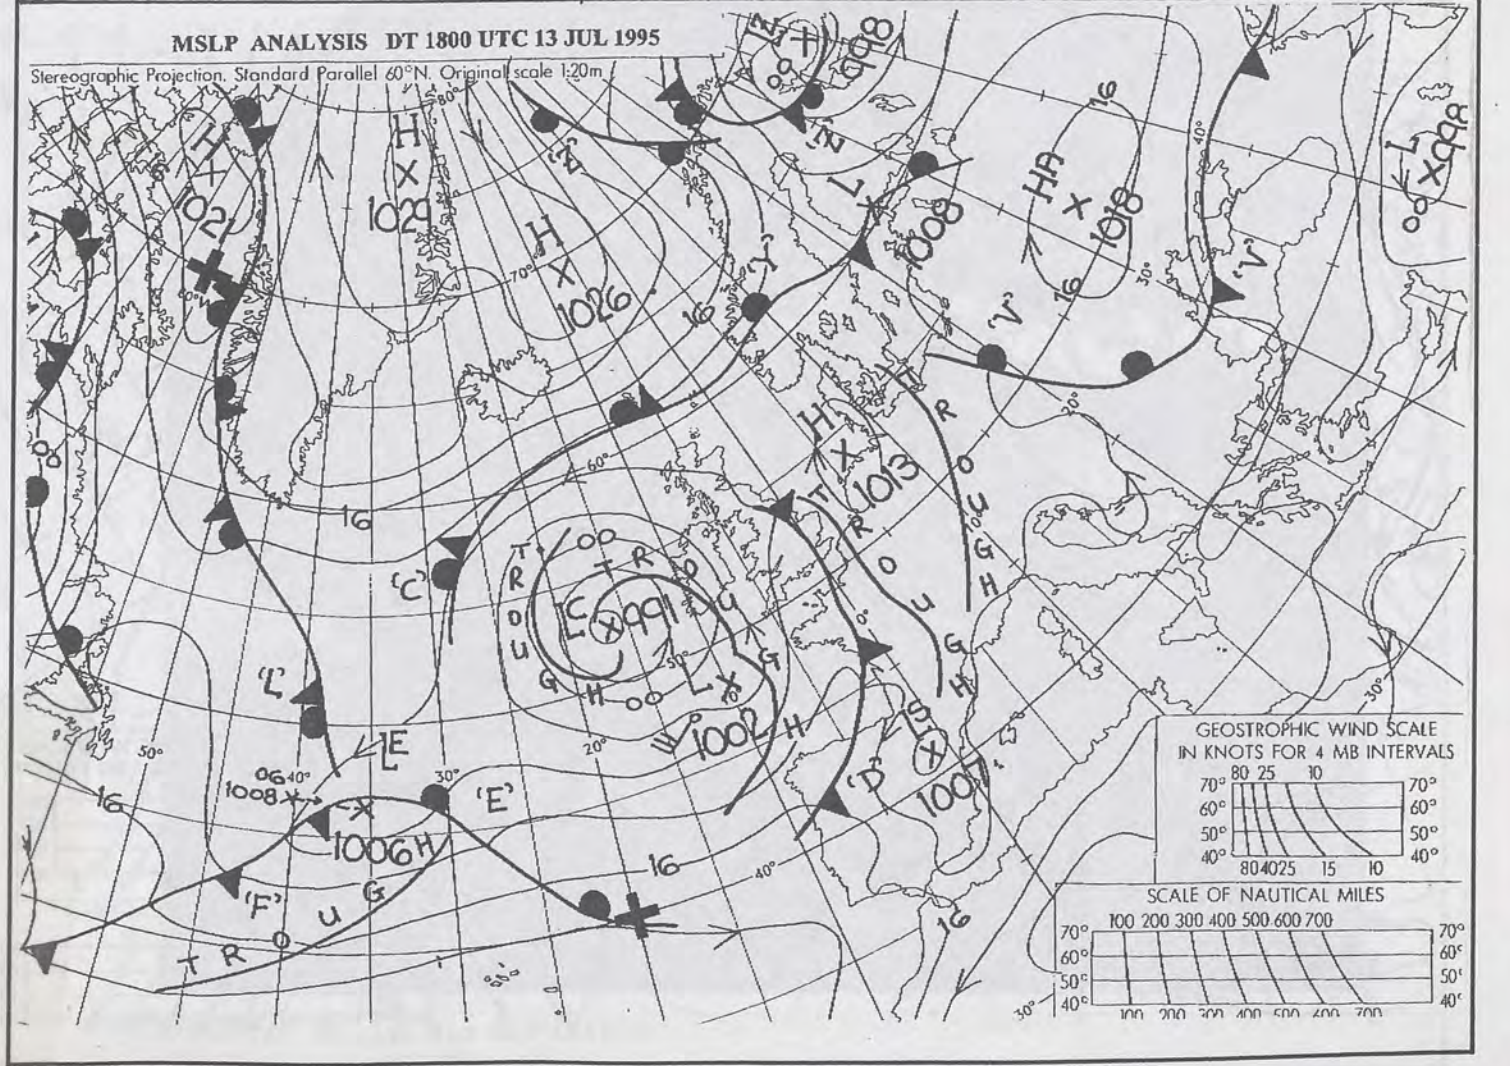 MSLP ANALYSIS DT 1800 UTC 13 JUL 1995
Stereographic Projection, Standard Parallel 60°N. Original scale 1:20m
80°
998
16
40°
L
998
00
H
1021
H
1029
H
1026
70°
'Y'
16
L
1008
HA
1018
16
30°
'V'
'V'
20°
H
1013
TROUGH
TROUGH
60°
16
'C'
00
TROUGH
TROUGH
991
50°
00
L
1002
20°
0°
'L'
50°
06
40°
1008
LE
30°
'E'
1006
TROUGH
'F'
16
16
40°
'D'
1007
16
30°
30°
GEOSTROPHIC WIND SCALE
IN KNOTS FOR 4 MB INTERVALS
80 25 10
70° 70°
60° 60°
50° 50°
40° 40°
80 40 25 15 10
SCALE OF NAUTICAL MILES
100 200 300 400 500 600 700
70° 70°
60° 60°
50° 50°
40° 40°
100 200 300 400 500 600 700